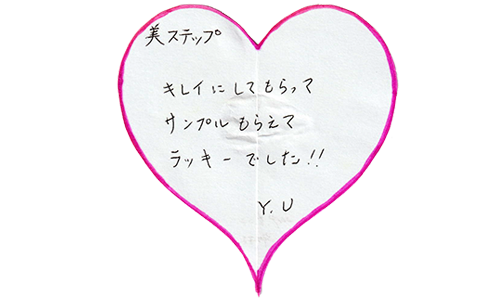 美ステップ
キレイにしてもらって
サンプルもらえて
ラッキーでした!!
Y.U